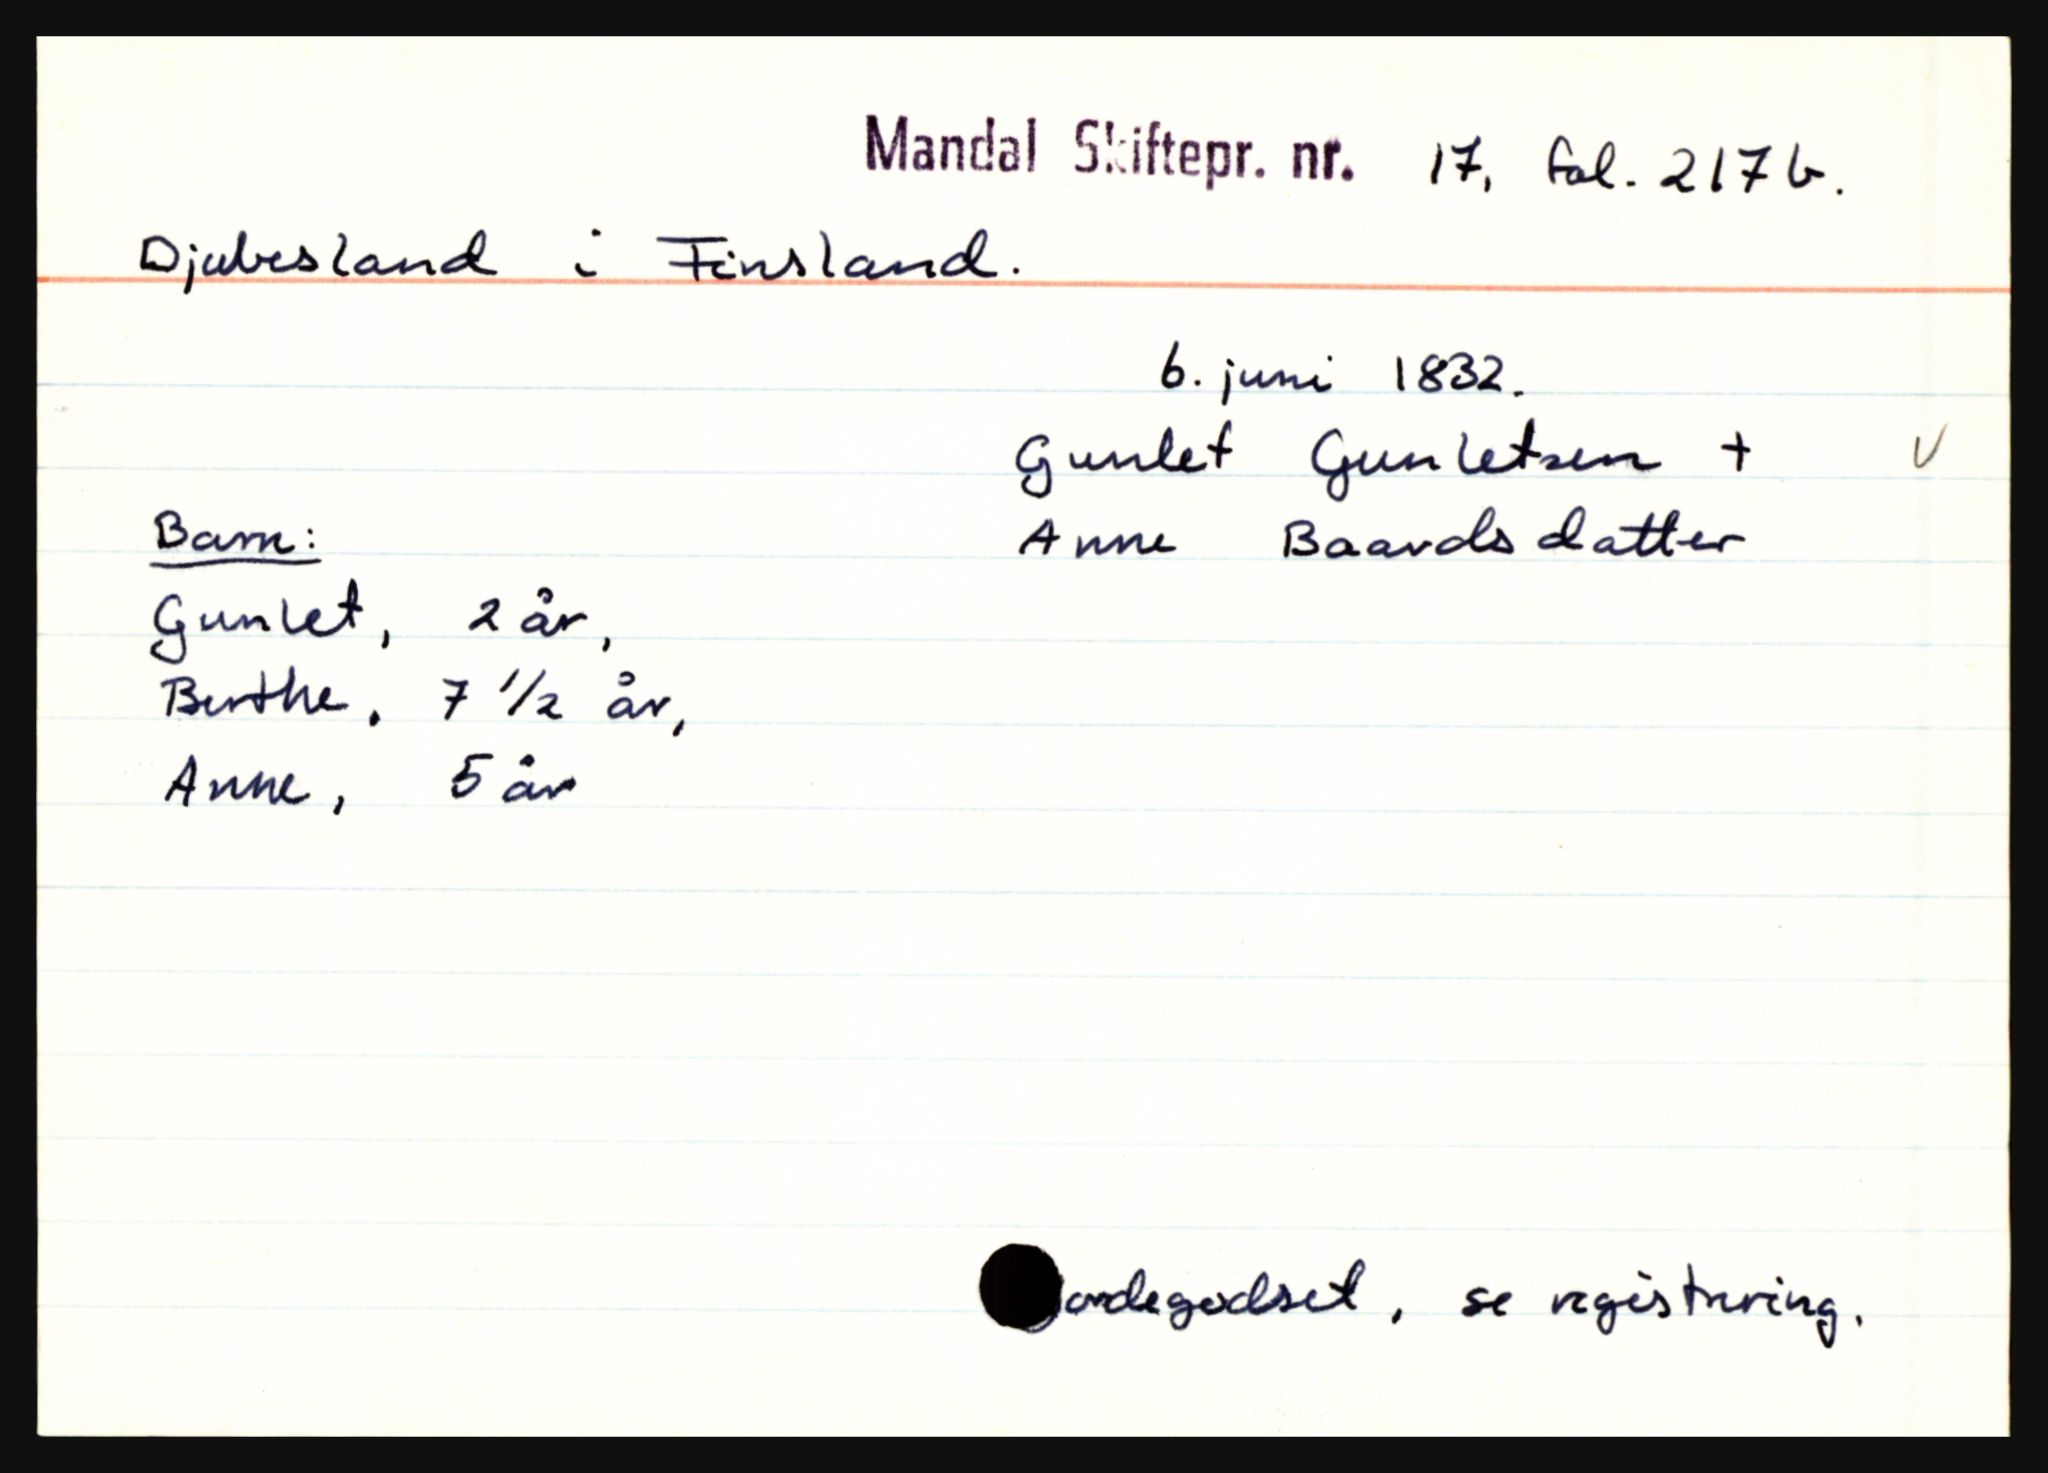 Mandal Skiftepr. nr. 17, fol. 217 b.
Djubesland i Finsland.
6. juni 1832.
Gunlet Gunletsen + v
Anne Baardsdatter
Barn:
Gunlet, 2 år,
Berthe, 7 1/2 år,
Anne, 5 år
Jordegodset, se registrering.